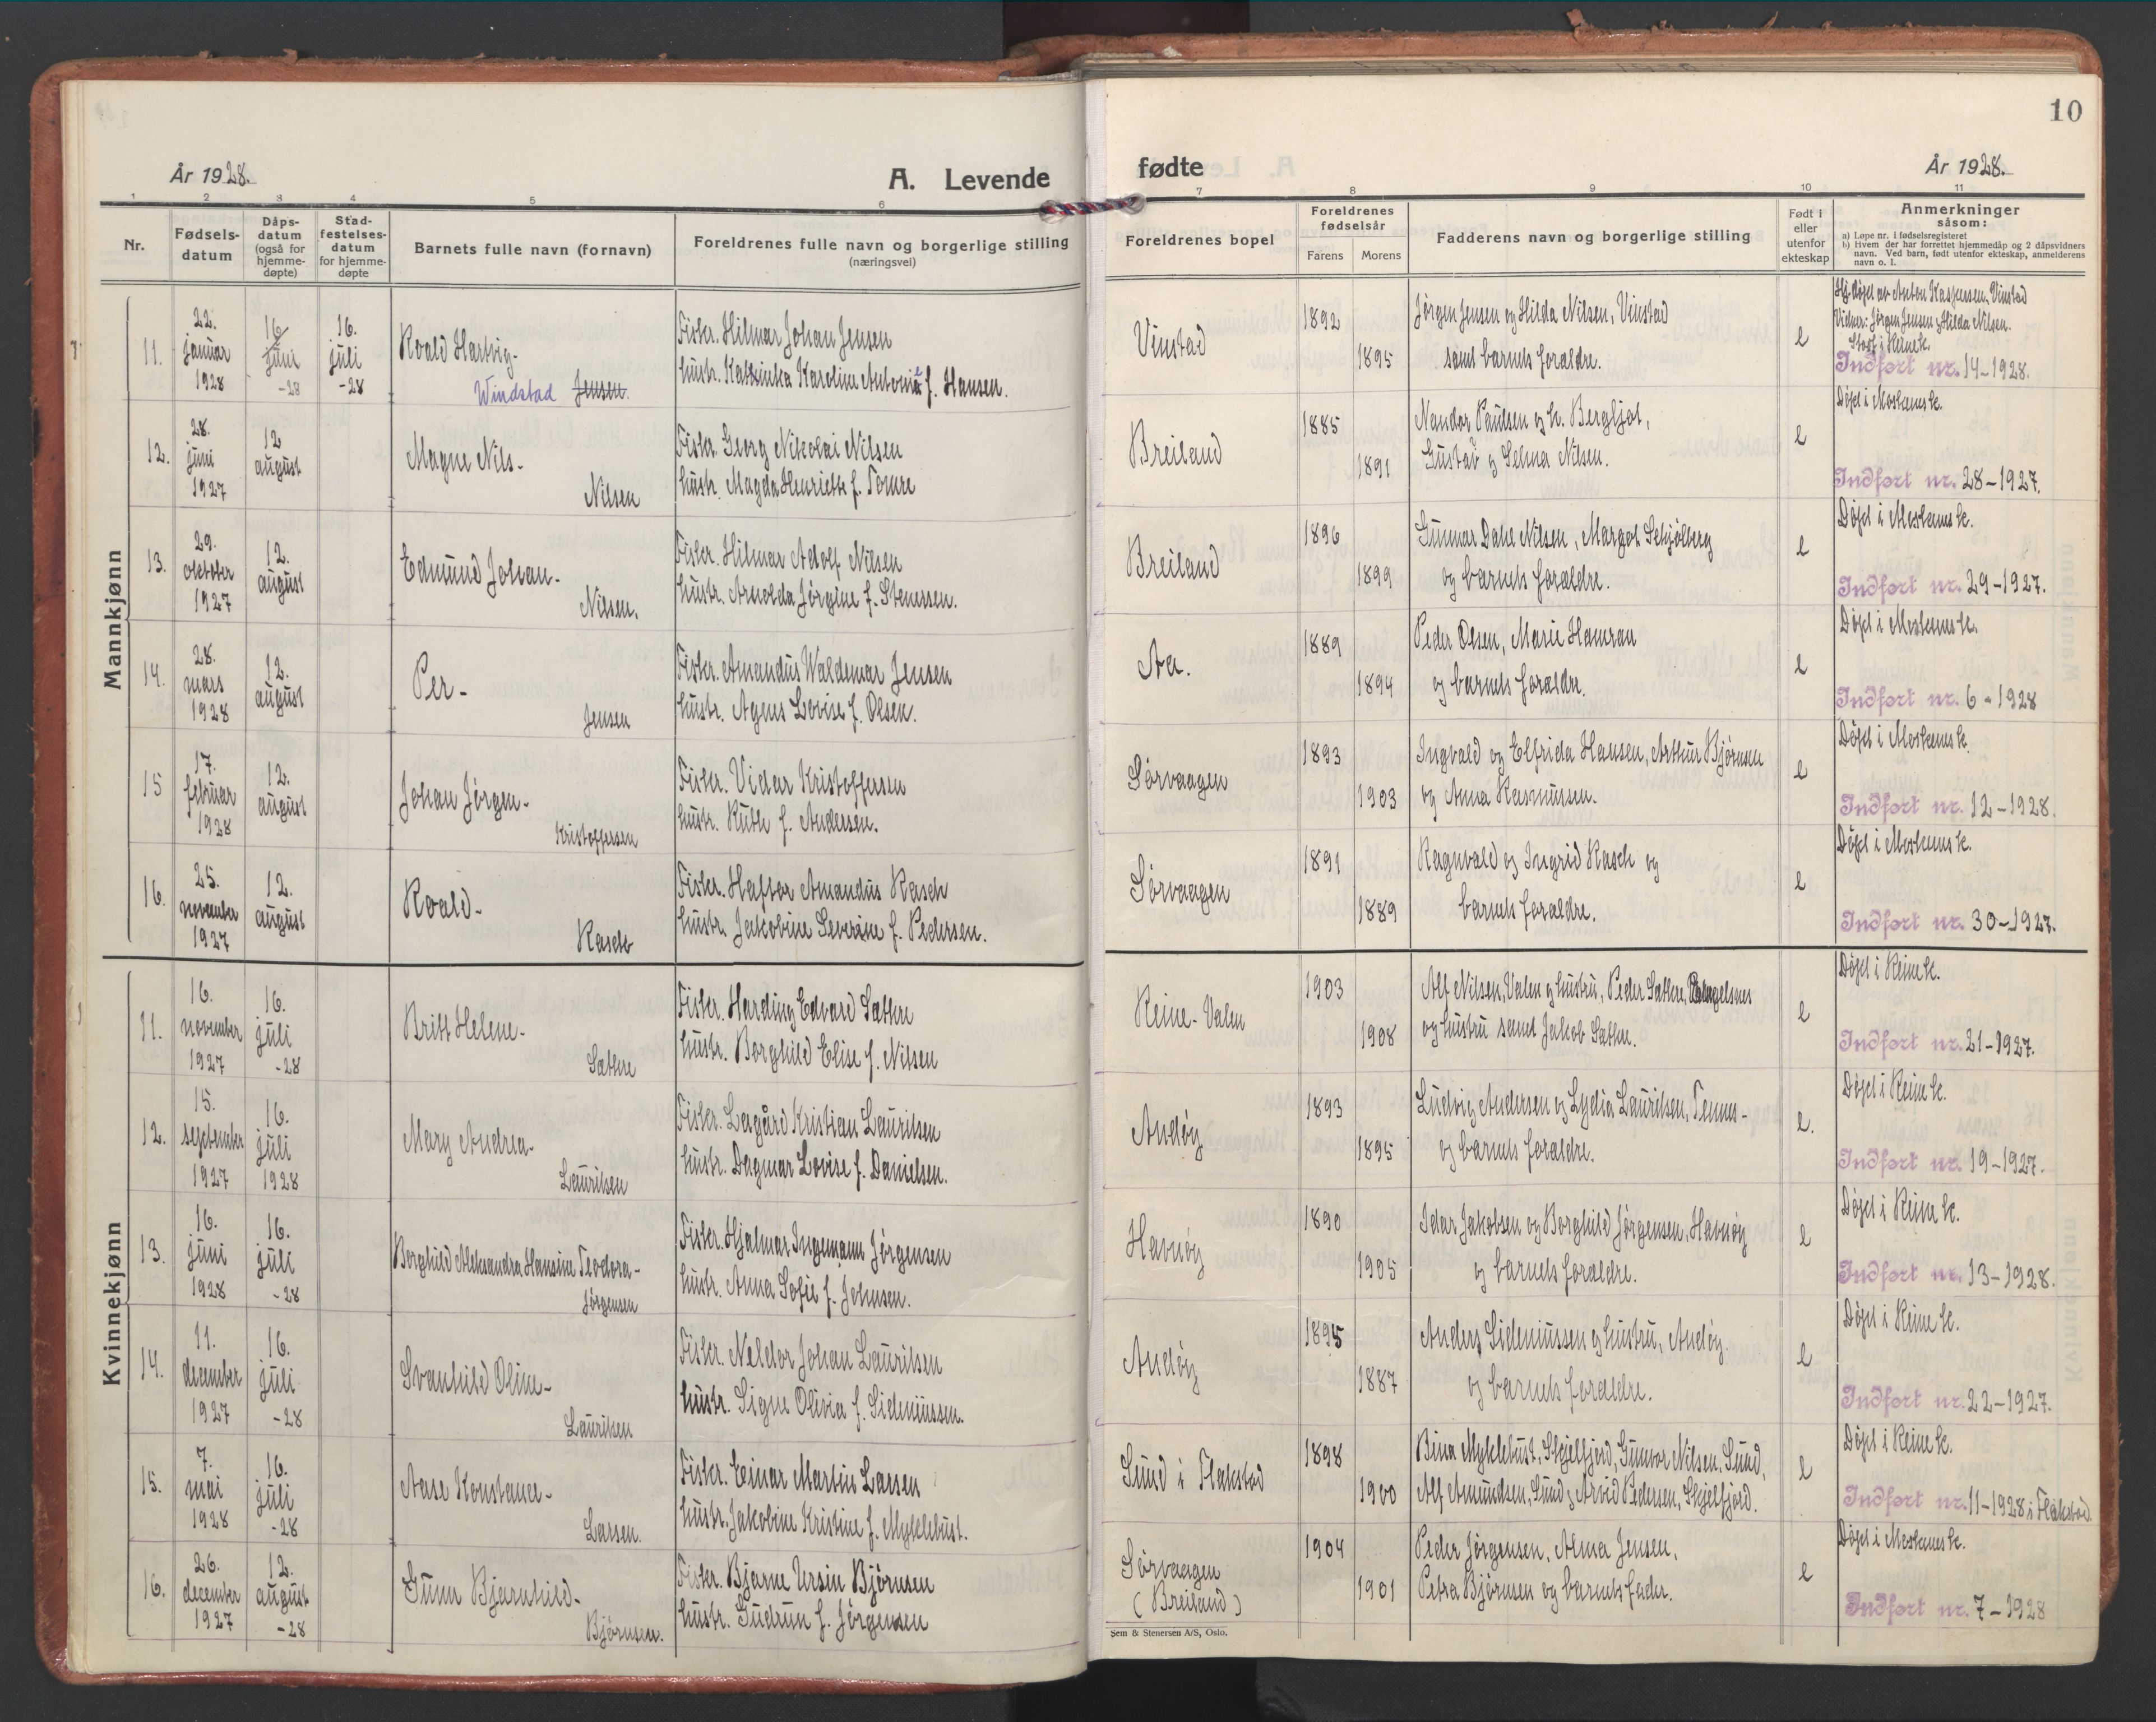 10
År 1928.
A. Levende
fødte
År 1928.
1 2 3 4 5 6 7 8 9 10 11
Nr.
Fødsels-
datum
Dåps-
datum
(også for
hjemme-
døpte)
Stad-
festelses-
datum
for hjemme-
døpte
Barnets fulle navn (fornavn)
Foreldrenes fulle navn og borgerlige stilling
(næringsvei)
Foreldrenes bopel
Foreldrenes
fødselsår
Farens Morens
Fadderens navn og borgerlige stilling
Født i
eller
utenfor
ekteskap
Anmerkninger
såsom:
a) Løpe nr. i fødselsregisteret
b) Hvem der har forrettet hjemmedåp og 2 dåpsvidners
navn. Ved barn, født utenfor ekteskap, anmelderens
navn o. l.
Mannkjønn
11.
22.
januar
1928
16
juni
-28
16.
juli
-28
Roald Hartvig-
Windstad Jensen.
Fisker. Hilmar Johan Jensen
hustr. Katinka Karoline Antonie f. Hansen.
Vinstad
1892
1895
Jørgen Jensen og Hilda Nilsen, Vinstad
samt barnets foraldre.
e
Hj. døpt av Anton Kaspersen, Vinstad
Vidner: Jørgen Jensen og Hilda Nilsen.
Stadf. i Reine k.
Indført nr. 14-1928.
12.
28.
juni
1927
12
august
Magne Nils-
Nilsen
Fisker. Georg Nikolai Nilsen
hustr. Magda Henriette f. Tomre
Breiland
1885
1891
Nandor Paulsen og h. Bergljot,
Gustav og Selma Nilsen.
e
Døpt i Moskenes k.
Indført nr. 28-1927.
13.
29.
oktober
1927
12.
august
Edmund Johan-
Nilsen.
Fisker. Hilmar Adolf Nilsen
hustr. Arnolda Jørgine f. Stenssen.
Breiland
1896
1899
Gunnar Dahl Nilsen, Margot Schjølberg
og barnets foraldre.
e
Døpt i Moskenes k.
Indført nr. 29-1927.
14.
28.
mars
1928
12.
august
Per-
Jensen
Fisker. Amandus Waldemar Jensen
hustr. Agnes Lovise f. Olsen.
Aa.
1889
1894
Peder Olsen, Marie Hamran
og barnets foraldre.
e
Døpt i Moskenes k.
Indført nr. 6-1928
15
17.
februar
1928
12.
august
Johan Jørgen-
Kristoffersen
Fisker. Vidar Kristoffersen
hustr. Ruth f. Andersen.
Sørvaagen
1893
1903
Ingvald og Elfrida Hansen, Arthur Bjørnsen
og Anna Rasmussen.
e
Døpt i Moskenes k.
Indført nr. 12-1928.
16.
25.
november
1927
12.
august
Roald-
Rasch
Fisker. Haftor Amandus Rasch
hustr. Jakobine Severine f. Pedersen.
Sørvaagen
1891
1889
Ragnvald og Ingrid Rasch og
barnets foraldre.
e
Døpt i Moskenes k.
Indført nr. 30-1927.
Kvinnekjønn
11.
16.
november
1927
16.
juli
-28
Britt Helene-
Sæthre
Fisker. Harding Edvard Sæthre
hustr. Borghild Elise f. Nilsen
Reine-Valen
1903
1908
Alf Nilsen, Valen og hustru, Peder Sæthre,
og hustru samt Jakob Sæthre.
e
Døpt i Reine k.
Indført nr. 21-1927.
12.
15.
september
1927
16.
juli
1928
Mary Andrea-
Lauritsen
Fisker. Lagård Kristian Lauritsen
hustr. Dagmar Lovise f. Danielsen.
Andøy
1893
1895
Ludvig Andersen og Lydia Lauritsen, Tennes-
og barnets foraldre.
e.
Døpt i Reine k.
Indført nr. 19-1927.
13.
16.
juni
1928
16.
juli
-28
Borghild Aleksandra Hansine Teodora-
Jørgensen
Fisker. Hjalmar Ingemann Jørgensen
hustr. Anna Sofie f. Johnsen.
Havnøy
1890
1905
Idar Jakobsen og Borghild Jørgensen, Havnøy
og barnets foraldre.
e
Døpt i Reine k.
Indført nr. 13-1928.
14.
11.
december
1927
16.
juli
-28
Svanhild Oline-
Lauritsen
Fisker. Neldor Johan Lauritsen
hustr. Signe Olivia f. Sideniussen.
Andøy
1895
1887
Anders Sideniussen og hustru, Andøy.
og barnets foraldre.
e
Døpt i Reine k.
Indført nr. 22-1927.
15.
7.
mai
1928
16.
juli
-28
Aase Konstance-
Larsen.
Fisker. Einar Martin Larsen
hustr. Jakobine Kristine f. Myklebust.
Sund i Flakstad
1898
1900
Bina Myklebust, Skjelfjord, Gunvor Nilsen, Sund,
Alf Amundsen, Sund, Arvid Pedersen, Skjelfjord.
e
Døpt i Reine k.
Indført nr. 11-1928 i Flakstad
16.
26.
december
1927
12.
august
-28
Gunn Bjarnhild-
Bjørnsen.
Fisker. Bjarne Ursin Bjørnsen
hustr. Gudrun f. Jørgensen
Sørvaagen
(Breiland)
1904
1901
Peder Jørgensen, Alma Jensen,
Petra Bjørnsen og barnets fader.
e
Døpt i Moskenes k.
Indført nr. 7-1928
Sem & Stenersen A/S, Oslo.